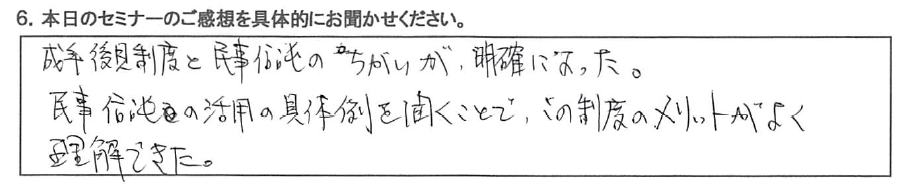 6. 本日のセミナーのご感想を具体的にお聞かせください。
成年後見制度と民事信託のちがいが、明確になった。
民事信託の活用の具体例を聞くことで、この制度のメリットがよく
理解できた。